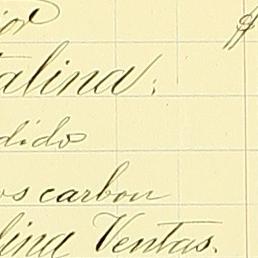 ior $
talina.
dido
os carbon
lina Ventas.